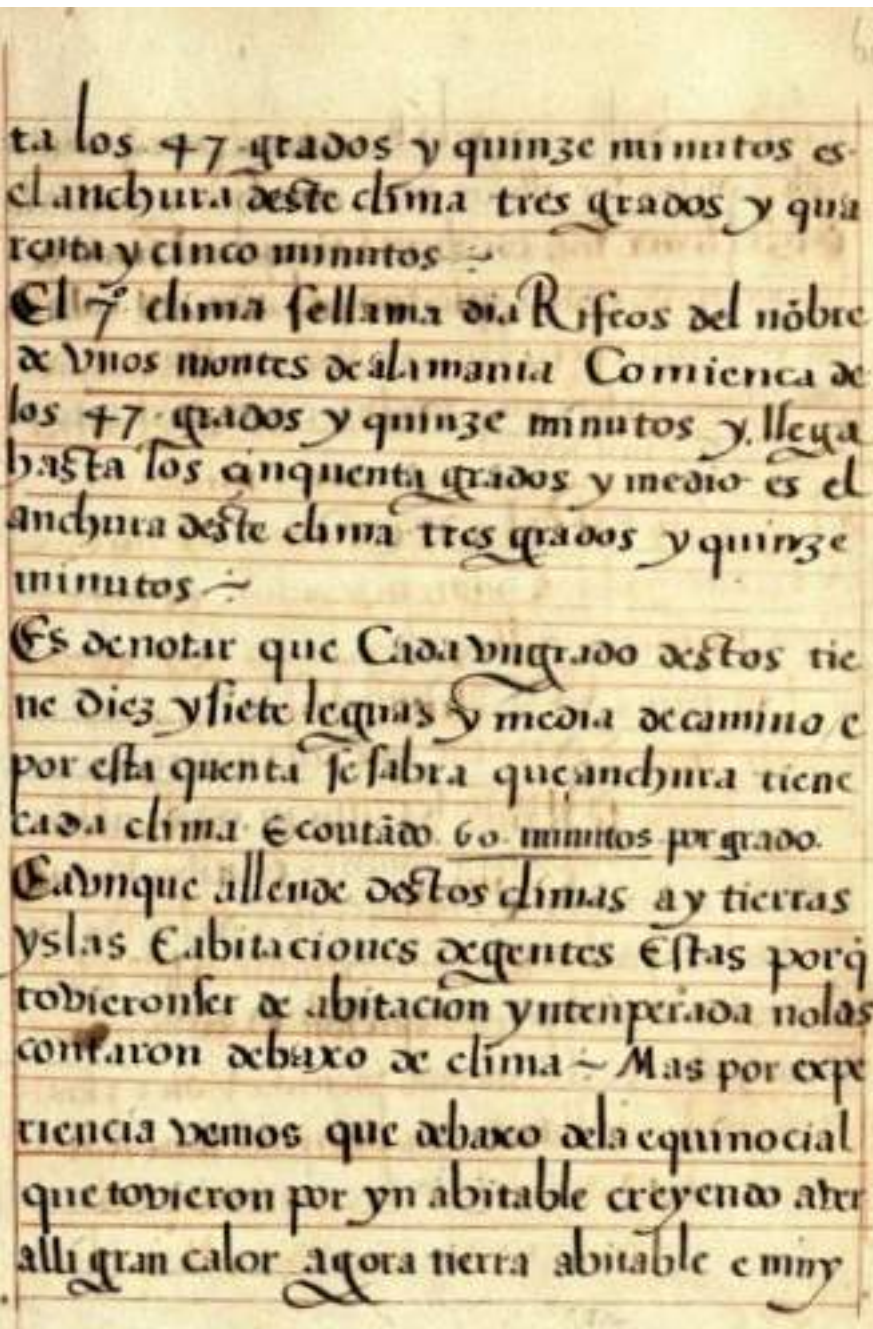 ta los 47 grados y quinze minutos es
el anchura deste clima tres grados y qua
renta y cinco minutos ~
El 7º clima se llama dia Rifeos del nõbre
de vnos montes de alamania Comienca de
los 47 grados y quinze minutos y llega
hasta los cinquenta grados y medio es el
anchura deste clima tres grados y quinze
minutos ~
Es de notar que Cada vn grado destos tie
ne diez y siete leguas y media de camino e
por esta quenta se sabra que anchura tiene
cada clima E contãdo 60 minutos por grado.
E avnque allende destos climas ay tierras
yslas E abitaciones de gentes Estas porq̃
tovieron ser de abitacion yntenperada no las
contaron debaxo de clima ~ Mas por expe
riencia vemos que debaxo de la equinocial
que tovieron por yn abitable creyendo aver
alli gran calor agora tierra abitable e muy